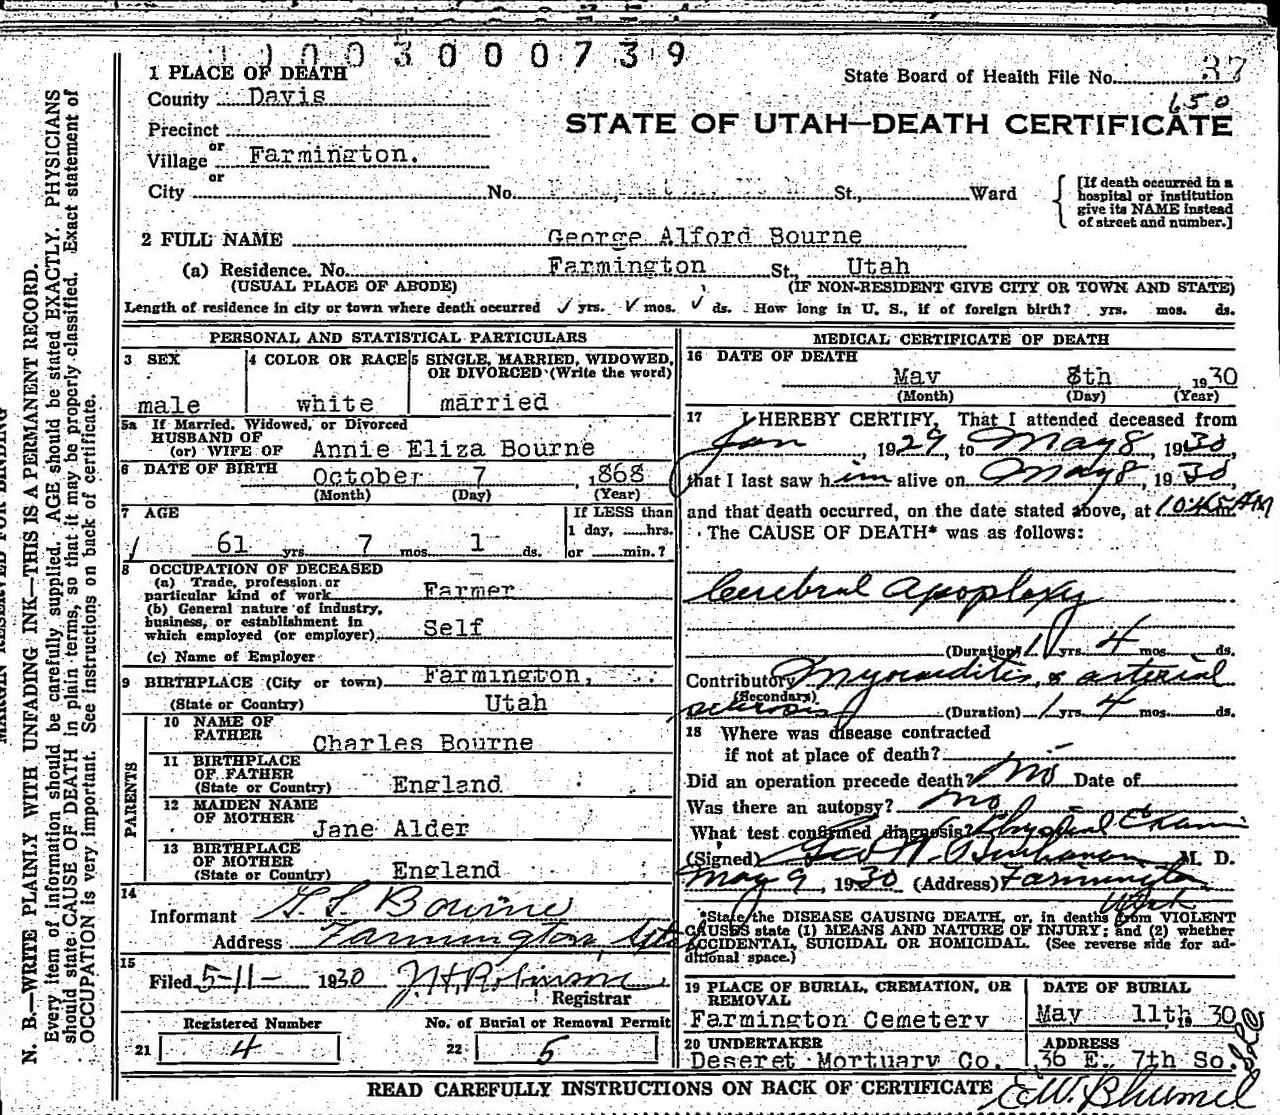 11003000739
1 PLACE OF DEATH
State Board of Health File No. 37
County Davis
650
Precinct
STATE OF UTAH—DEATH CERTIFICATE
or
Village Farmington.
or
City No. St., Ward
[If death occurred in a
hospital or institution
give its NAME instead
of street and number.]
2 FULL NAME George Alford Bourne
(a) Residence. No. Farmington St., Utah
(USUAL PLACE OF ABODE) (IF NON-RESIDENT GIVE CITY OR TOWN AND STATE)
Length of residence in city or town where death occurred ✓ yrs. ✓ mos. ✓ ds. How long in U. S., if of foreign birth? yrs. mos. ds.
PERSONAL AND STATISTICAL PARTICULARS
3 SEX
male
4 COLOR OR RACE
white
5 SINGLE, MARRIED, WIDOWED,
OR DIVORCED (Write the word)
married
5a If Married, Widowed, or Divorced
HUSBAND OF
(or) WIFE OF Annie Eliza Bourne
6 DATE OF BIRTH October 7, 1868
(Month) (Day) (Year)
7 AGE
61 yrs. 7 mos. 1 ds.
If LESS than
1 day, ......hrs.
or ......min.?
8 OCCUPATION OF DECEASED
(a) Trade, profession or
particular kind of work Farmer
(b) General nature of industry,
business, or establishment in
which employed (or employer) Self
(c) Name of Employer
9 BIRTHPLACE (City or town) Farmington,
(State or Country) Utah
PARENTS
10 NAME OF
FATHER Charles Bourne
11 BIRTHPLACE
OF FATHER
(State or Country) England
12 MAIDEN NAME
OF MOTHER Jane Alder
13 BIRTHPLACE
OF MOTHER
(State or Country) England
14
Informant Bourne
Address Farmington, Utah
15
Filed 5-11- 1930 J.H. Robinson
Registrar
Registered Number
21 4
No. of Burial or Removal Permit
22 5
MEDICAL CERTIFICATE OF DEATH
16 DATE OF DEATH
May 8th 1930
(Month) (Day) (Year)
17 I HEREBY CERTIFY, That I attended deceased from
Jan, 1929, to May 8, 1930,
that I last saw him alive on May 8, 1930,
and that death occurred, on the date stated above, at 10:45 AM
The CAUSE OF DEATH* was as follows:
Cerebral Apoplexy
(Duration) 1 yrs. 4 mos. ds.
Contributory Myocarditis & arterial
(Secondary)
sclerosis (Duration) 1 yrs. 4 mos. ds.
18 Where was disease contracted
if not at place of death? —
Did an operation precede death? No Date of
Was there an autopsy? No
What test confirmed diagnosis? Physical Exam
(Signed) Geo W. Buchanan M. D.
May 9, 1930 (Address) Farmington
Utah
*State the DISEASE CAUSING DEATH, or, in deaths from VIOLENT
CAUSES state (1) MEANS AND NATURE OF INJURY; and (2) whether
ACCIDENTAL, SUICIDAL OR HOMICIDAL. (See reverse side for ad-
ditional space.)
19 PLACE OF BURIAL, CREMATION, OR
REMOVAL
Farmington Cemetery
DATE OF BURIAL
May 11th, 1930
20 UNDERTAKER
Deseret Mortuary Co.
ADDRESS
36 E. 7th So.
READ CAREFULLY INSTRUCTIONS ON BACK OF CERTIFICATE
MARGIN RESERVED FOR BINDING
N. B.—WRITE PLAINLY WITH UNFADING INK—THIS IS A PERMANENT RECORD.
Every item of information should be carefully supplied. AGE should be stated EXACTLY. PHYSICIANS
should state CAUSE OF DEATH in plain terms, so that it may be properly classified. Exact statement of
OCCUPATION is very important. See instructions on back of certificate.